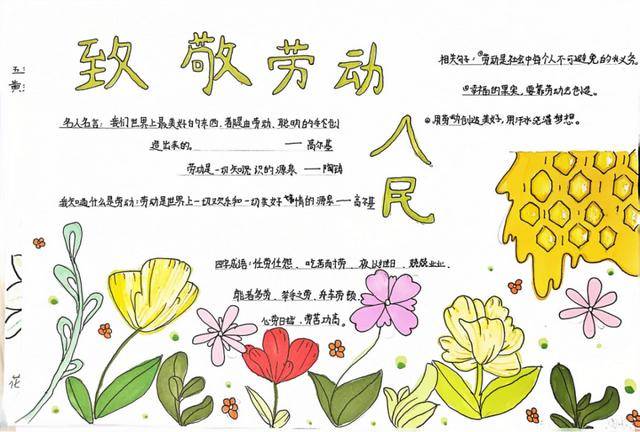 致敬劳动
人民
名人名言：我们世界上最美好的东西，都是由劳动、聪明的手创
造出来的。——高尔基
劳动是一切知识的源泉 ——陶铸
我知道什么是劳动：劳动是世界上一切欢乐和一切美好事情的源泉 ——高尔基
相关句子：①劳动是社会中每个人不可避免的义务。
②幸福的果实，要靠劳动去创造。
③用劳动创造美好，用汗水浇灌梦想。
四字成语：任劳任怨、吃苦耐劳、夜以继日、兢兢业业、
能者多劳、举手之劳、
心劳日拙、劳苦功高。
五
黄
花